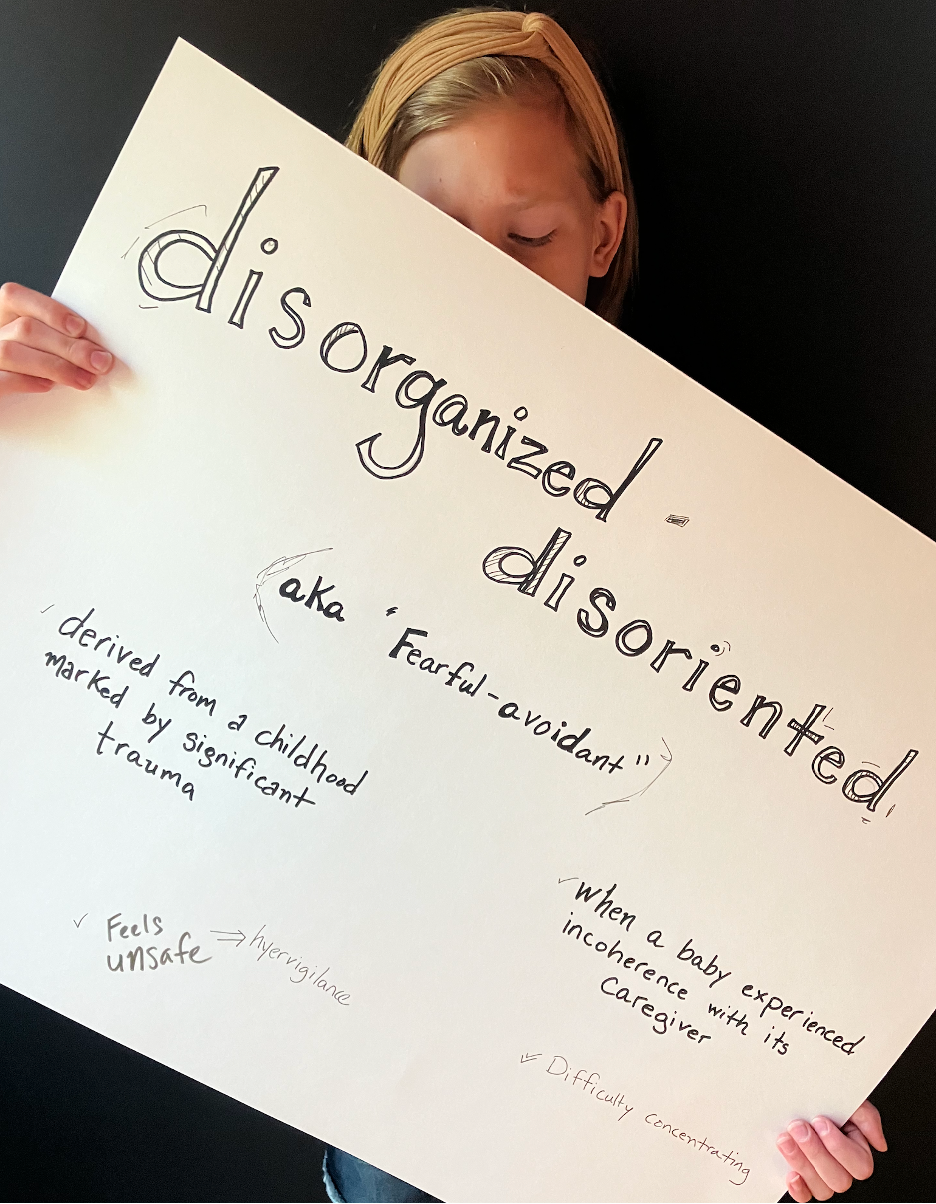 disorganized -
disoriented
(aka "Fearful-avoidant")
derived from a childhood
marked by significant
trauma
✓ Feels
unsafe ⇒ hyervigilance
✓ when a baby experienced
incoherence with its
caregiver
✓ Difficulty concentrating